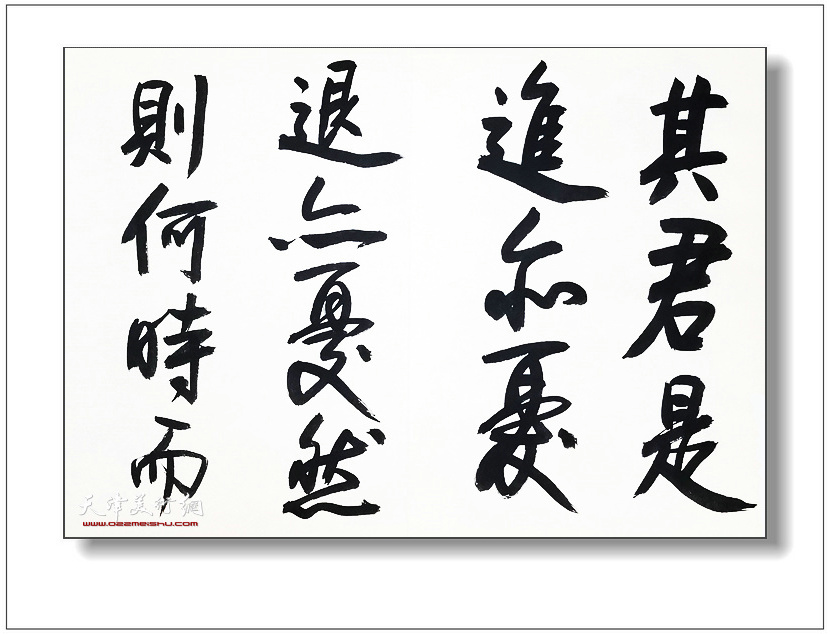 其君是
進亦憂
退亦憂然
則何時而
天津美術網
www.022meishu.com